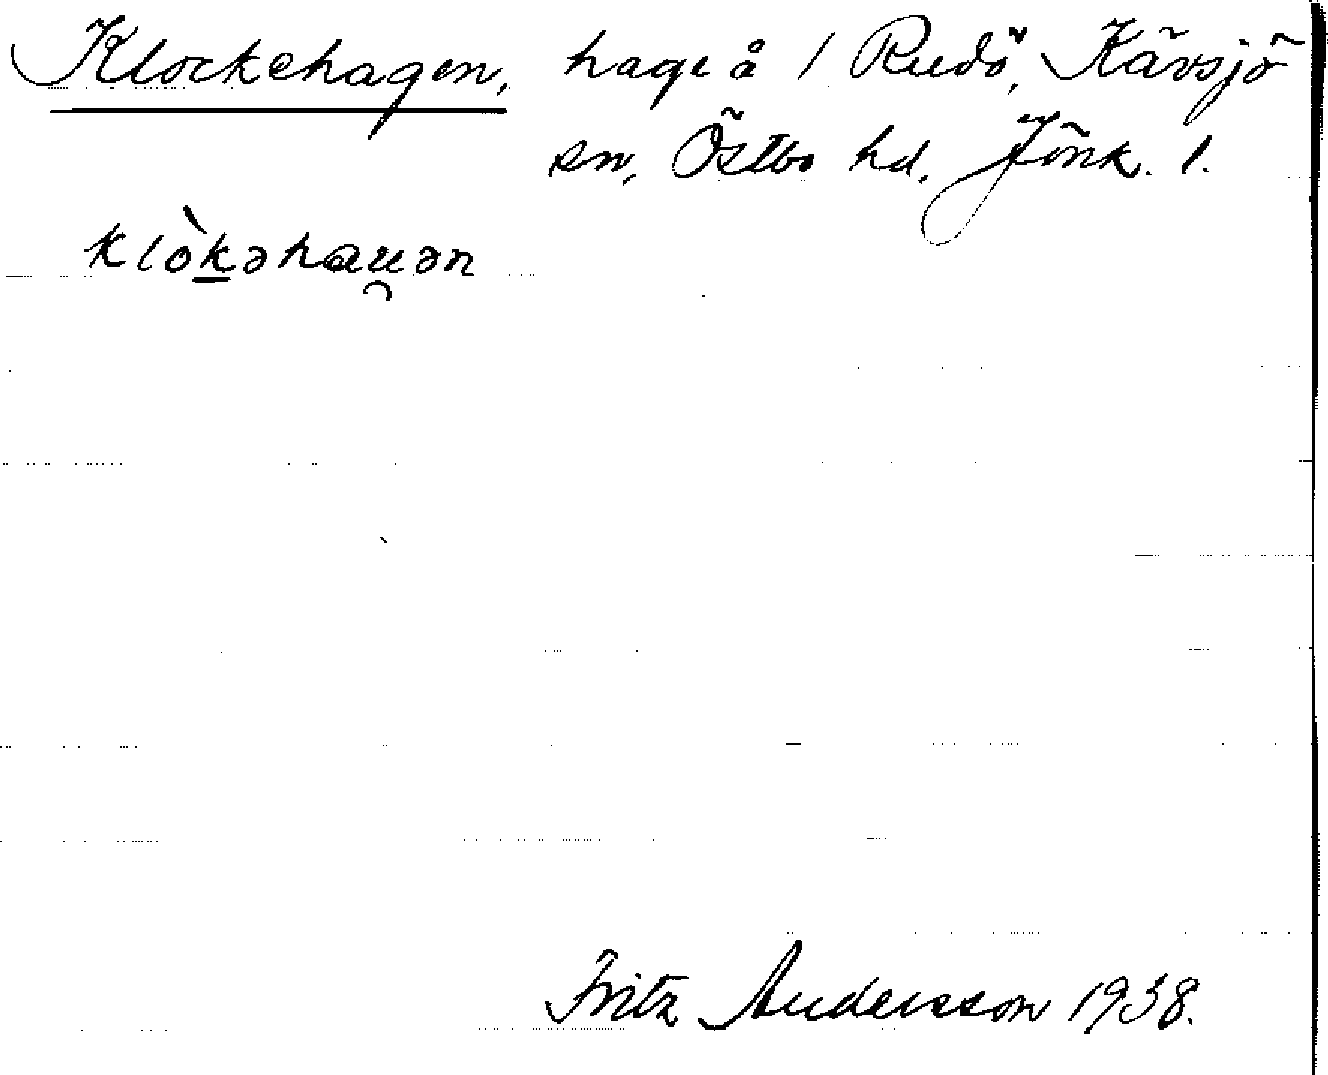 Klockehagen, hage å 1 Rudö, Kävsjö
sn, Östbo hd, Jönk. l.
klòkəhau̯ən
Fritz Andersson 1938.